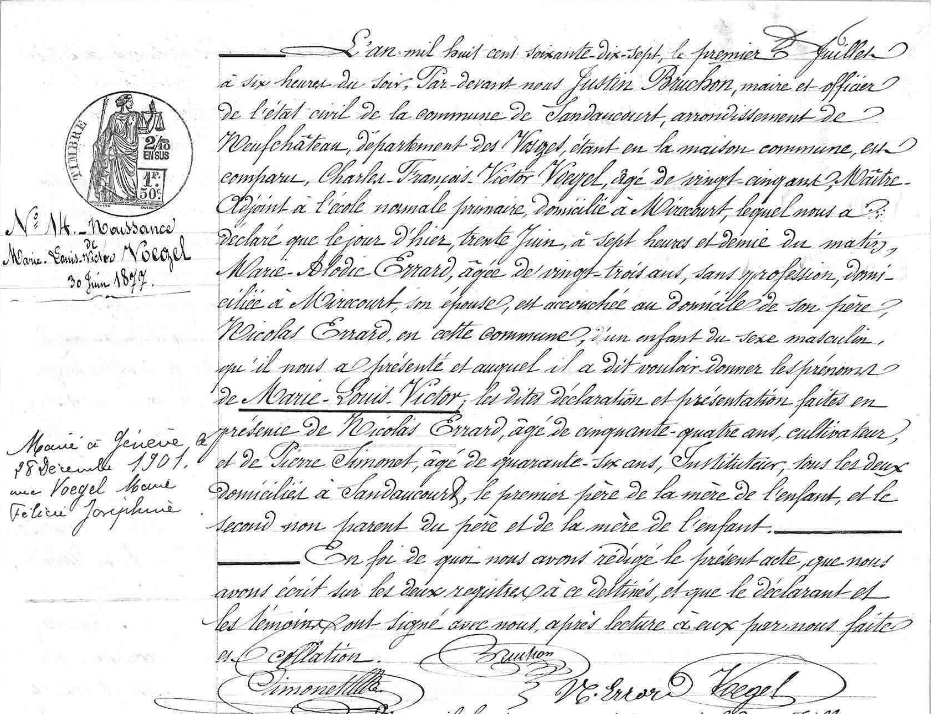 L'an mil huit cent soixante-dix-sept, le premier Juillet
à six heures du soir, Par-devant nous Justin Bruchon, maire et officier
de l'état civil de la commune de Sandaucourt, arrondissement de
Neufchâteau, département des Vosges, étant en la maison commune, est
comparu, Charles-François-Victor Voegel, âgé de vingt-cinq ans, Maître-
Adjoint à l'école normale primaire, domicilié à Mirecourt, lequel nous a
déclaré que le jour d'hier, trente Juin, à sept heures et demie du matin,
Marie-Elodie Errard, âgée de vingt-trois ans, sans profession, domi-
ciliée à Mirecourt, son épouse, est accouchée au domicile de son père,
Nicolas Errard, en cette commune, d'un enfant du sexe masculin,
qu'il nous a présenté et auquel il a dit vouloir donner les prénoms
de Marie-Louis-Victor; les dites déclaration et présentation faites en
présence de Nicolas Errard, âgé de cinquante-quatre ans, cultivateur,
et de Pierre Simonet, âgé de quarante-six ans, Instituteur, tous les deux
domiciliés à Sandaucourt, le premier père de la mère de l'enfant, et le
second non parent du père et de la mère de l'enfant.
En foi de quoi nous avons rédigé le présent acte, que nous
avons écrit sur les deux registres à ce destinés, et que le déclarant et
les témoins ont signé avec nous, après lecture à eux par nous faite
et collation.
Bruchon
Simonet
N. Errard
Voegel
TIMBRE
2/10
EN SUS
1F.
50c.
N° 14.- Naissance
de
Marie-Louis-Victor Voegel
30 Juin 1877.
Marié à Genève le
28 Décembre 1901.
avec Voegel Marie
Félicie Joséphine